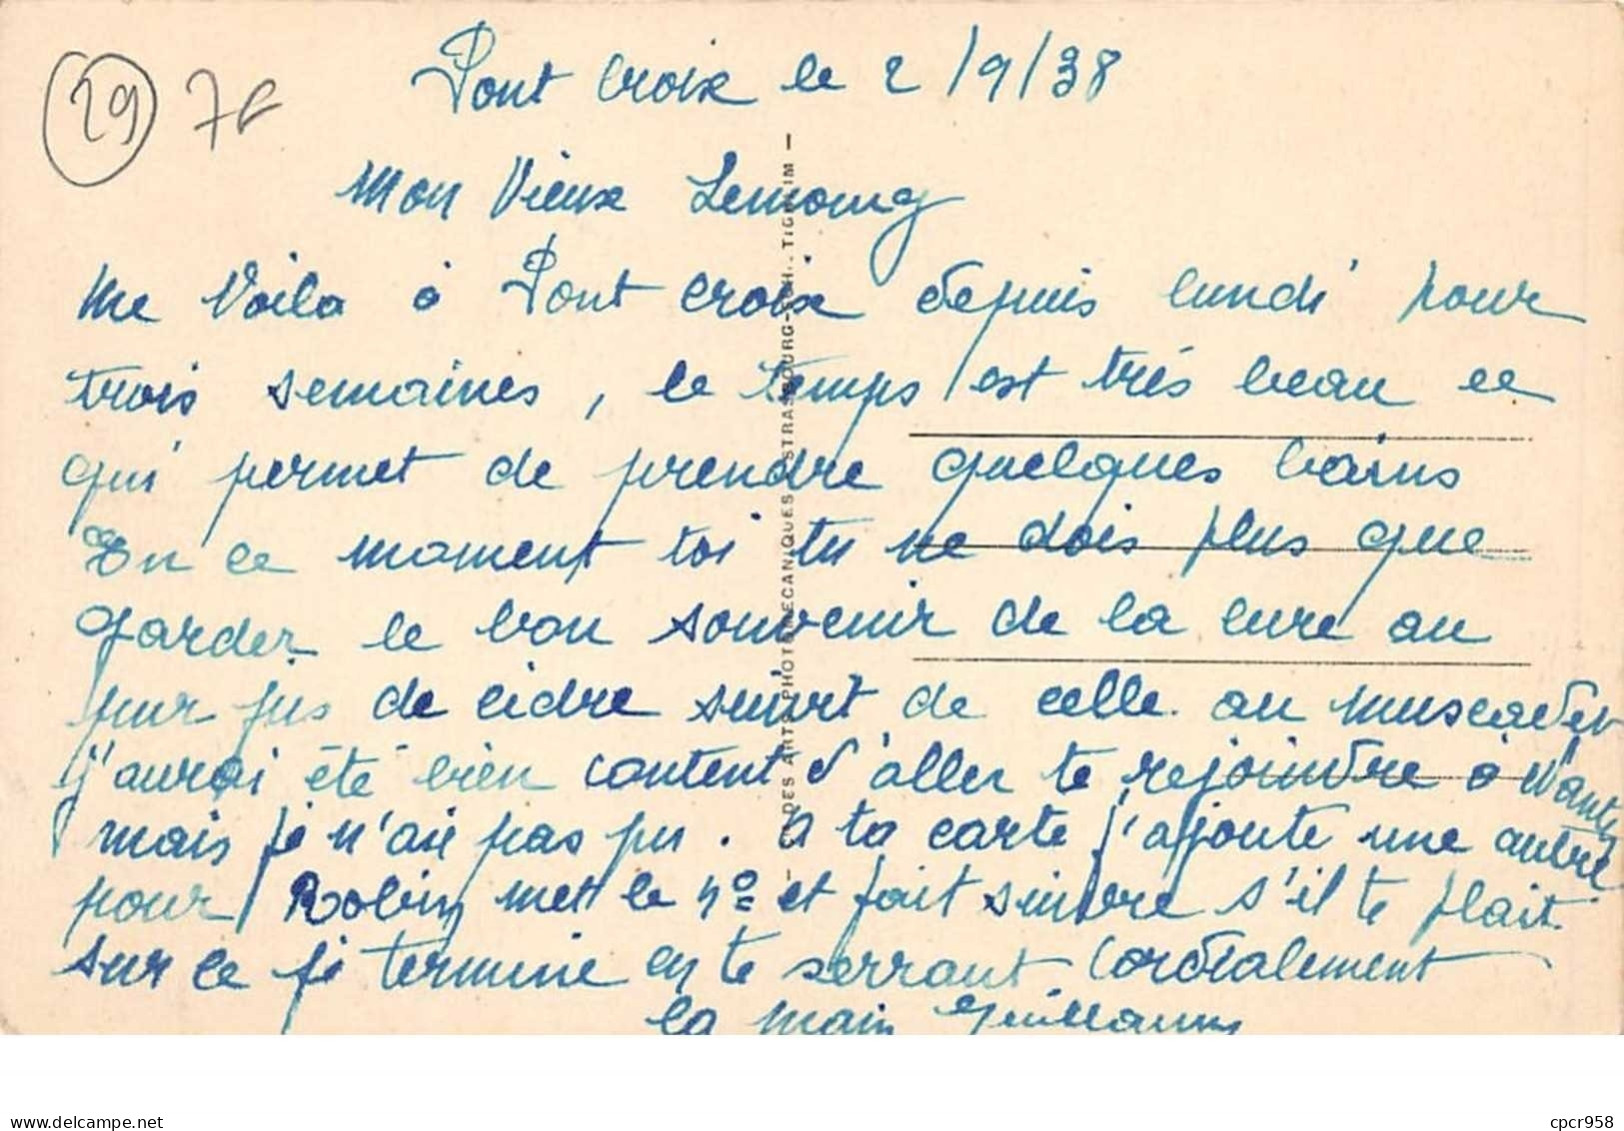 29 7f
Pont Croix le 2/9/38
Mon Vieux Lemoing
Me Voila à Pont Croix depuis lundi pour
trois semaines, le temps est très beau ce
qui permet de prendre quelques bains
En ce moment toi tu ne dois plus que
garder le bon souvenir de la cure au
pur jus de cidre suivit de celle au muscadet
j'aurai été bien content d'aller te rejoindre à Nantes
mais je n'ai pas pu. A ta carte j'ajoute une autre
pour Robin met le nº et fait suivre s'il te plait.
sur ce je termine en te serrant Cordialement
la main Guillaume
CIE DES ARTS PHOTOMECANIQUES STRASBOURG-SCH.
delcampe.net
cpcr958